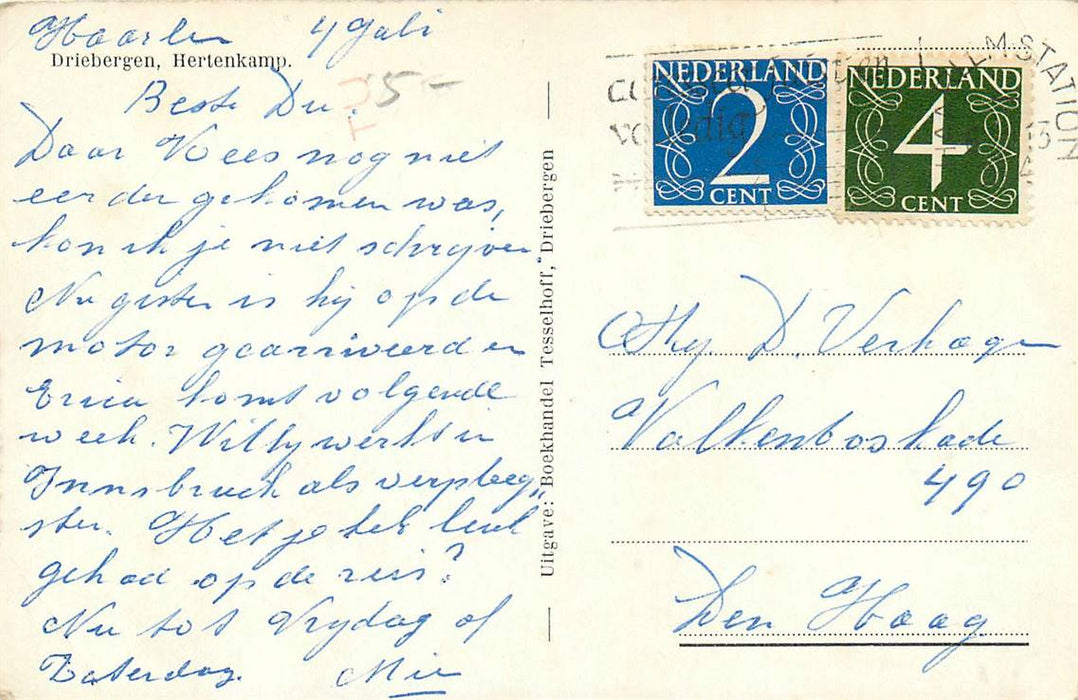 Haarlem 4 Juli
Driebergen, Hertenkamp.
5-
Beste Du.
Daar Kees nog niet
eerder gekomen was,
kon ik je niet schrijven
Nu gister is hij op de
motor gearriveerd en
Erica komt volgende
week. Willy werkt in
Innsbruck als verpleeg,
ster. Heb je het leuk
gehad op de reis?
Nu tot Vrijdag of
Zaterdag. Mie
Uitgave: Boekhandel Tesselhoff, Driebergen
NEDERLAND
2
CENT
NEDERLAND
4
CENT
STATION
D. Verhagen
Valkenboskade
490
Den Haag